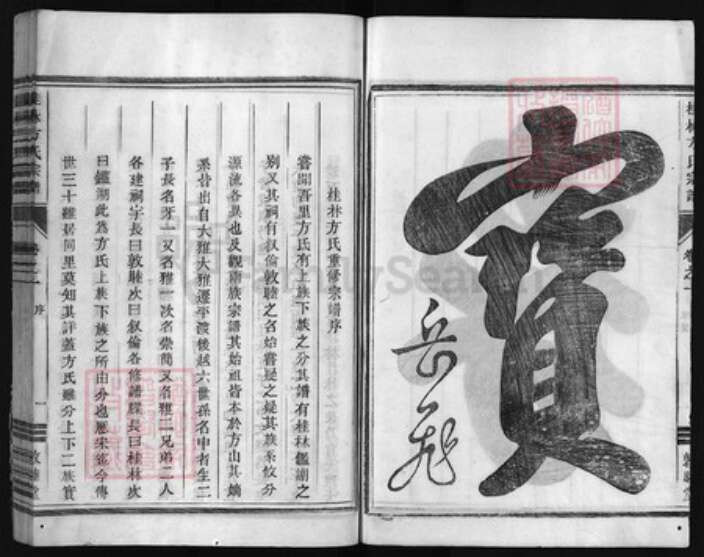 寶
岳飛
桂林方氏宗譜
卷之一
敦睦堂
桂林方氏重修宗譜序
嘗聞吾里方氏有上族下族之分其譜有桂林鑑湖之
別又其祠有叙倫敦睦之名始嘗疑之疑其族系紋分
源流各異也及觀兩族宗譜其始祖皆本於方山其嫡
系皆出自大雅大雅遷平渡後越六世孫名中者生二
子長名牙一又名雅一次名崇簡又名雅二兄弟二人
各建祠宇長曰敦睦次曰叙倫各修譜牒長曰桂林次
曰鑑湖此爲方氏上族下族之所由分也歷宋迄今傳
世三十雖居同里莫知其詳蓋方氏雖分上下二族實
桂林方氏宗譜
卷之一
序
一
敦睦堂
FamilySearch